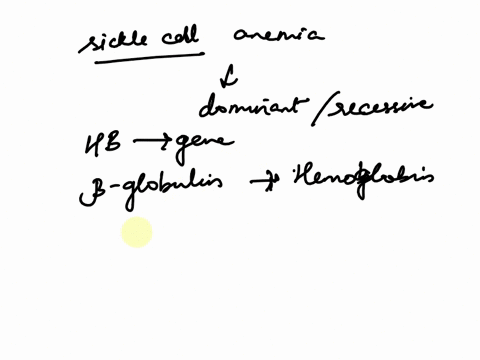 sickle cell anemia
↓
dominant / recessive
HB → gene
β-globulin → Hemoglobin